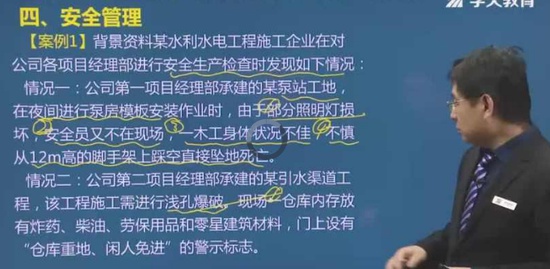 学天教育
四、安全管理
【案例1】背景资料某水利水电工程施工企业在对
公司各项目经理部进行安全生产检查时发现如下情况：
情况一：公司第一项目经理部承建的某泵站工地，
在夜间进行泵房模板安装作业时，由于部分照明灯损
坏，安全员又不在现场，一木工身体状况不佳，不慎
从12m高的脚手架上踩空直接坠地死亡。
情况二：公司第二项目经理部承建的某引水渠道工
程，该工程施工需进行浅孔爆破。现场仓库内存放
有炸药、柴油、劳保用品和零星建筑材料，门上设有
“仓库重地、闲人免进”的警示标志。